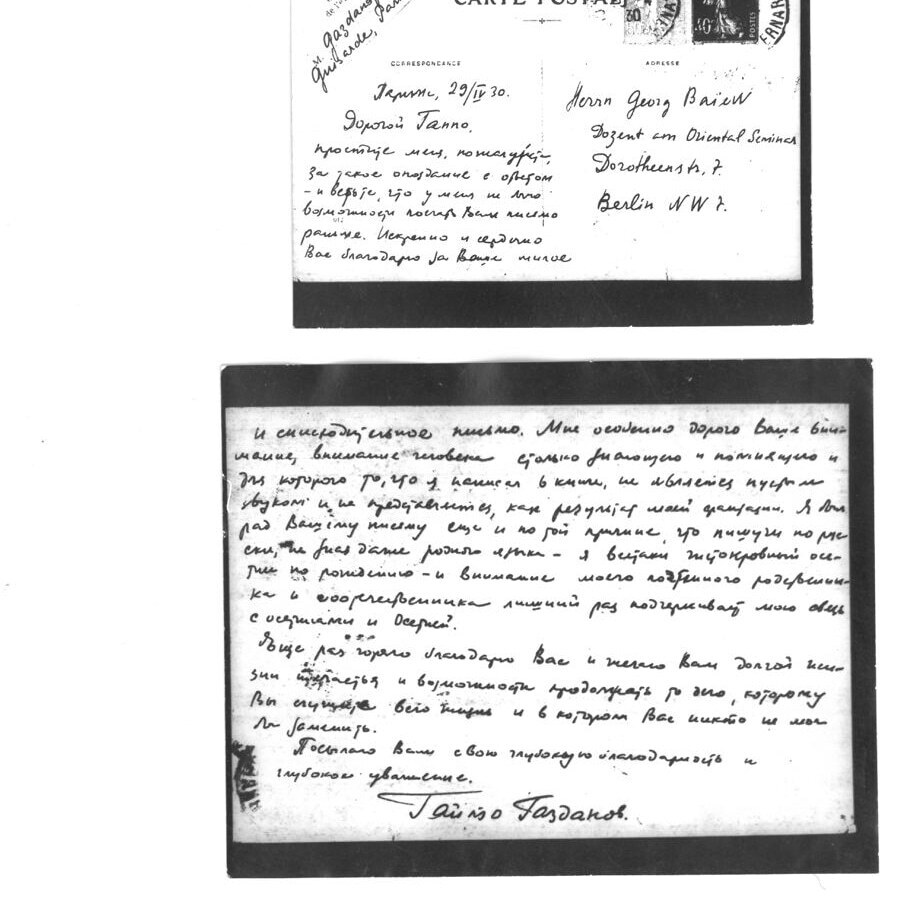 CARTE POSTALE
M. Gazdanov
Guisarde, Paris
30
POSTES
CORRESPONDANCE
ADRESSE
Париж, 29/IV 30.
Дорогой Гаппо,
простите меня, пожалуйста,
за такое опоздание с ответом
– и верьте, что у меня не было
возможности послать Вам письмо
раньше. Искренно и сердечно
Вас благодарю за Ваше милое
Herrn Georg Baiew
Dozent am Oriental Seminar
Dorotheenstr, 7.
Berlin NW 7.
и снисходительное письмо. Мне особенно дорого Ваше вни-
мание, внимание человека столько знающего и помнящего и
для которого то, что я написал в книге, не является пустым
звуком и не представляется, как результат моей фантазии. Я был
рад Вашему письму еще и по той причине, что пишучи по рус-
ски, не зная даже родного языка – я всетаки чистокровный осе-
тин по рождению – и внимание моего почтенного родственни-
ка и соотечественника лишний раз подчеркивает мою связь
с осетинами и Осетией.
Еще раз горячо благодарю Вас и желаю Вам долгой жи-
зни счастья и возможности продолжать то дело, которому
Вы служите всю жизнь и в котором Вас никто не мог
бы заменить.
Посылаю Вам свою глубокую благодарность и
глубокое уважение.
Гайто Газданов.